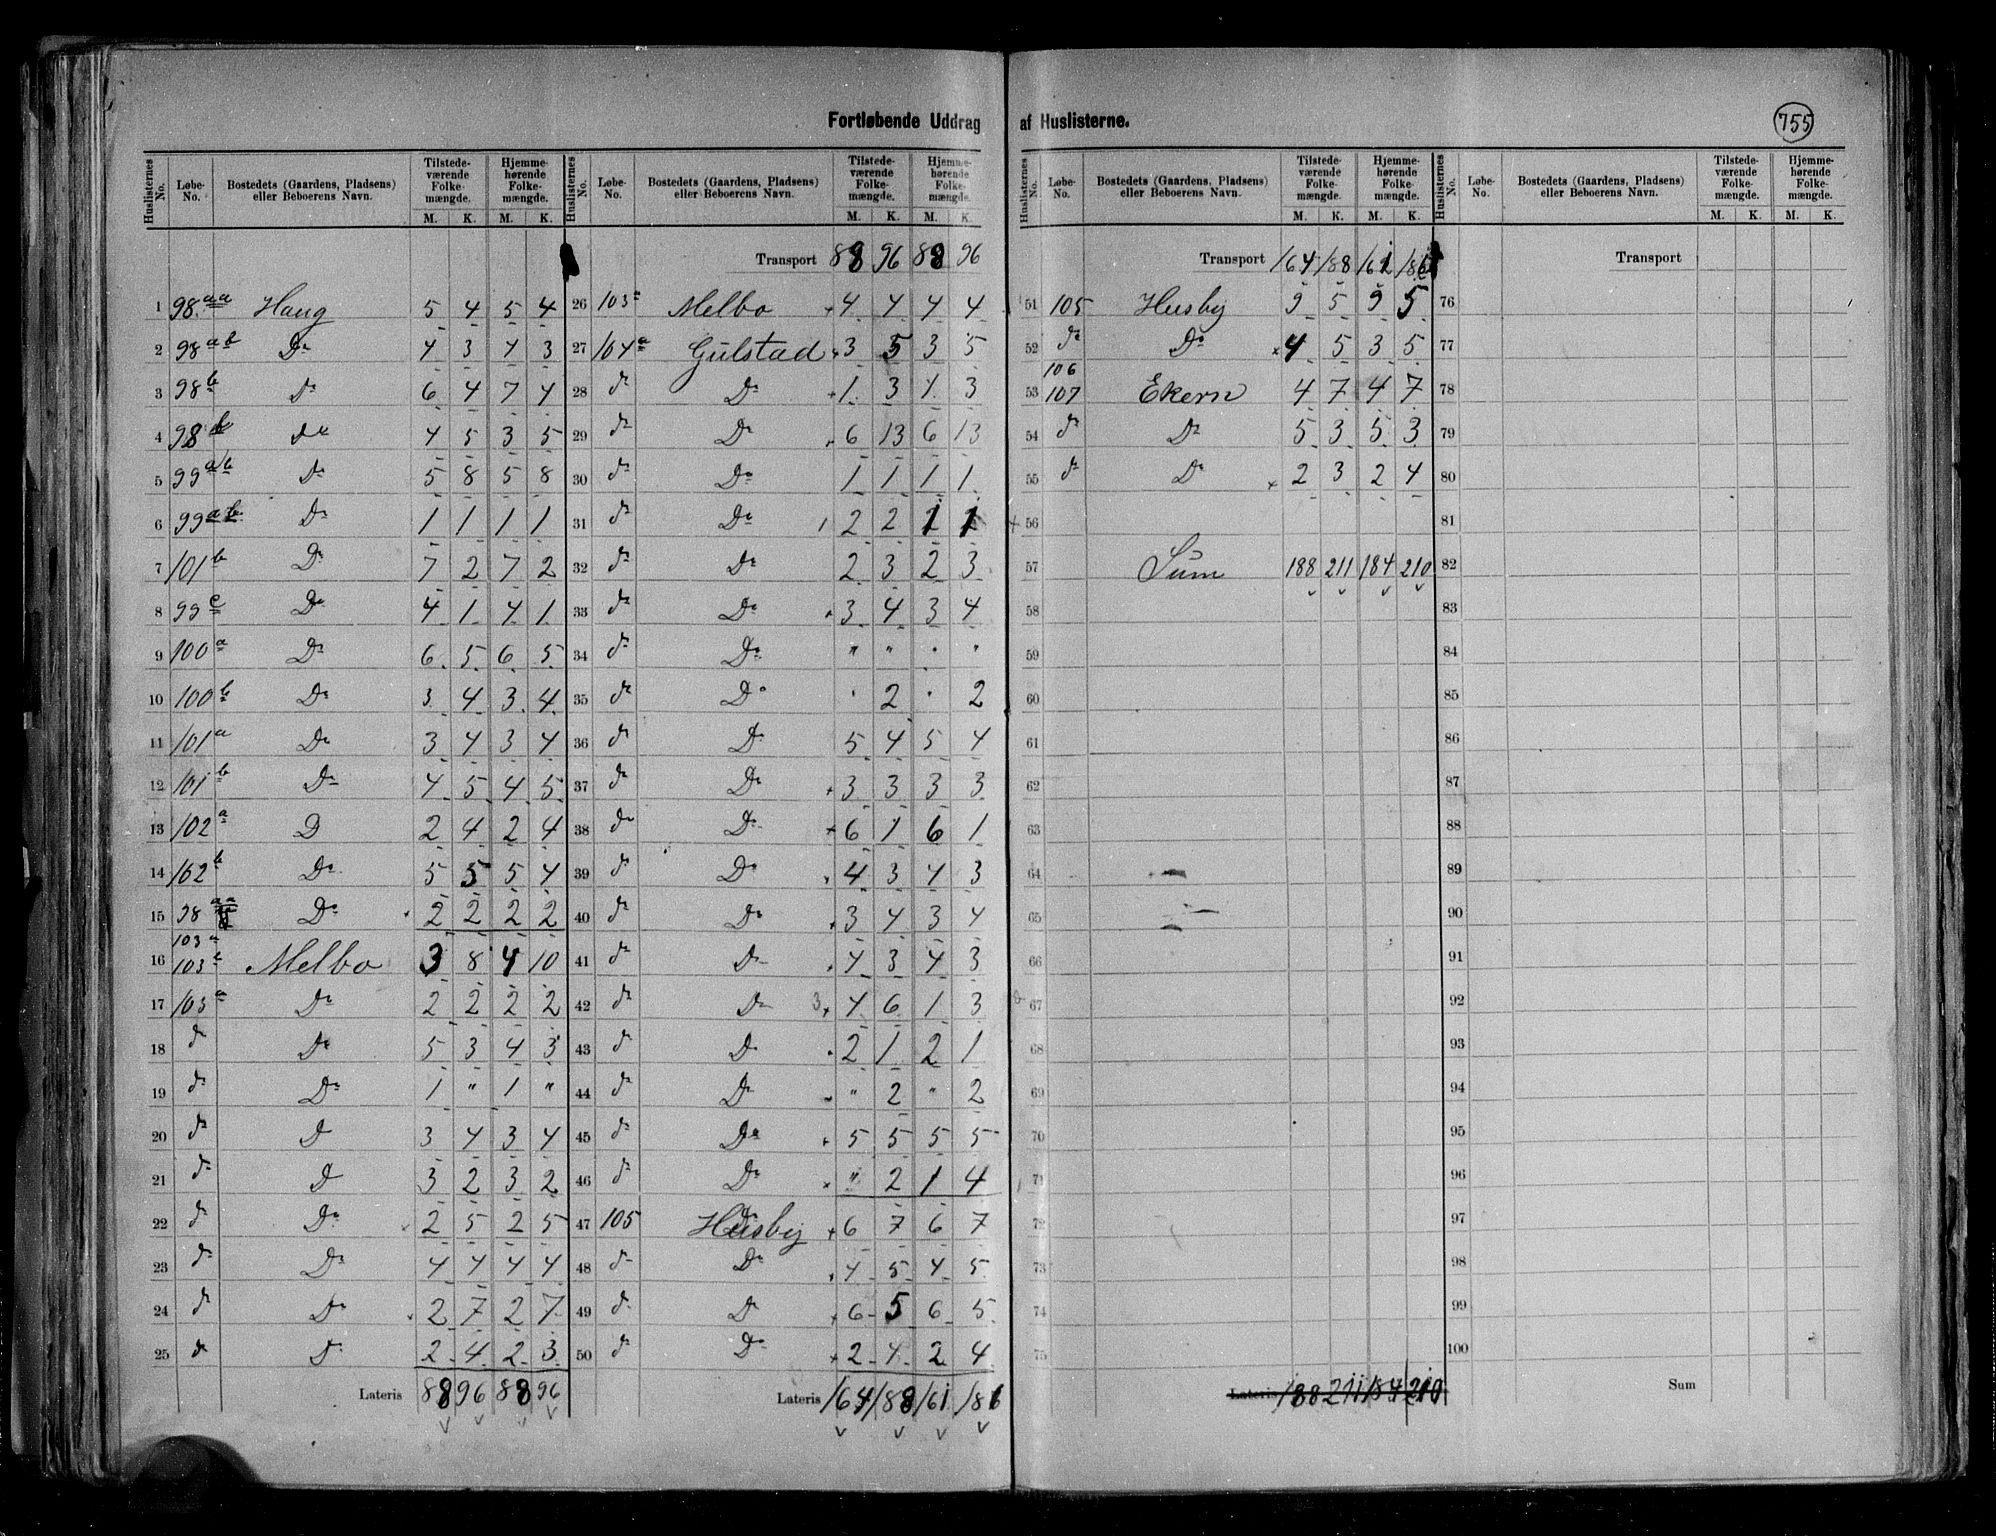 Fortløbende Uddrag af Huslisterne.
755
Huslisternes No. Løbe-No. Bostedets (Gaardens, Pladsens) eller Beboerens Navn. Tilstedeværende Folkemængde. M. K. Hjemmehørende Folkemængde. M. K.
1 98aa Haug 5 4 5 4
2 98ab Do 4 3 4 3
3 98b Do 6 4 7 4
4 98b do 4 5 3 5
5 99ab Do 5 8 5 8
6 99ab Do 1 1 1 1
7 101b Do 7 2 7 2
8 99c Do 4 1 4 1
9 100a Do 6 5 6 5
10 100b Do 3 4 3 4
11 101a Do 3 4 3 4
12 101b Do 4 5 4 5
13 102a D 2 4 2 4
14 102b Do 5 5 5 4
15 98aa Do 2 2 2 2
16 103a 103b Melbo 3 8 4 10
17 103a Do 2 2 2 2
18 do Do 5 3 4 3
19 do Do 1 " 1 "
20 do D 3 4 3 4
21 do D 3 2 3 2
22 do Do 2 5 2 5
23 do Do 4 4 4 4
24 do Do 2 7 2 7
25 do Do 2 4 2 3
Lateris 88 96 88 96
Huslisternes No. Løbe-No. Bostedets (Gaardens, Pladsens) eller Beboerens Navn. Tilstedeværende Folkemængde. M. K. Hjemmehørende Folkemængde. M. K.
Transport 88 96 88 96
26 103a Melbo 4 4 4 4
27 104a Gulstad 3 5 3 5
28 do Do 1 3 1 3
29 do Do 6 13 6 13
30 do Do 1 1 1 1
31 do Do 1 2 2 1 1
32 do Do 2 3 2 3
33 do Do 3 4 3 4
34 do Do " " " "
35 do Do " 2 " 2
36 do Do 5 4 5 4
37 do Do 3 3 3 3
38 do Do 6 1 6 1
39 do Do 4 3 4 3
40 do Do 3 4 3 4
41 do Do 4 3 4 3
42 do Do 3 4 6 1 3
43 do Do 2 1 2 1
44 do Do " 2 " 2
45 do Do 5 5 5 5
46 do Do " 2 1 4
47 105 Husby 6 7 6 7
48 do Do 4 5 4 5
49 do Do 6 5 6 5
50 do Do 2 4 2 4
Lateris 164 188 161 186
Huslisternes No. Løbe-No. Bostedets (Gaardens, Pladsens) eller Beboerens Navn. Tilstedeværende Folkemængde. M. K. Hjemmehørende Folkemængde. M. K.
Transport 164 188 161 186
51 105 Husby 9 5 9 5
52 do Do 4 5 3 5
53 106 107 Ekern 4 7 4 7
54 do Do 5 3 5 3
55 do Do 2 3 2 4
56
57 Sum 188 211 184 210
58
59
60
61
62
63
64
65
66
67
68
69
70
71
72
73
74
75
Lateris 188 211 184 210
Huslisternes No. Løbe-No. Bostedets (Gaardens, Pladsens) eller Beboerens Navn. Tilstedeværende Folkemængde. M. K. Hjemmehørende Folkemængde. M. K.
Transport
76
77
78
79
80
81
82
83
84
85
86
87
88
89
90
91
92
93
94
95
96
97
98
99
100
Sum